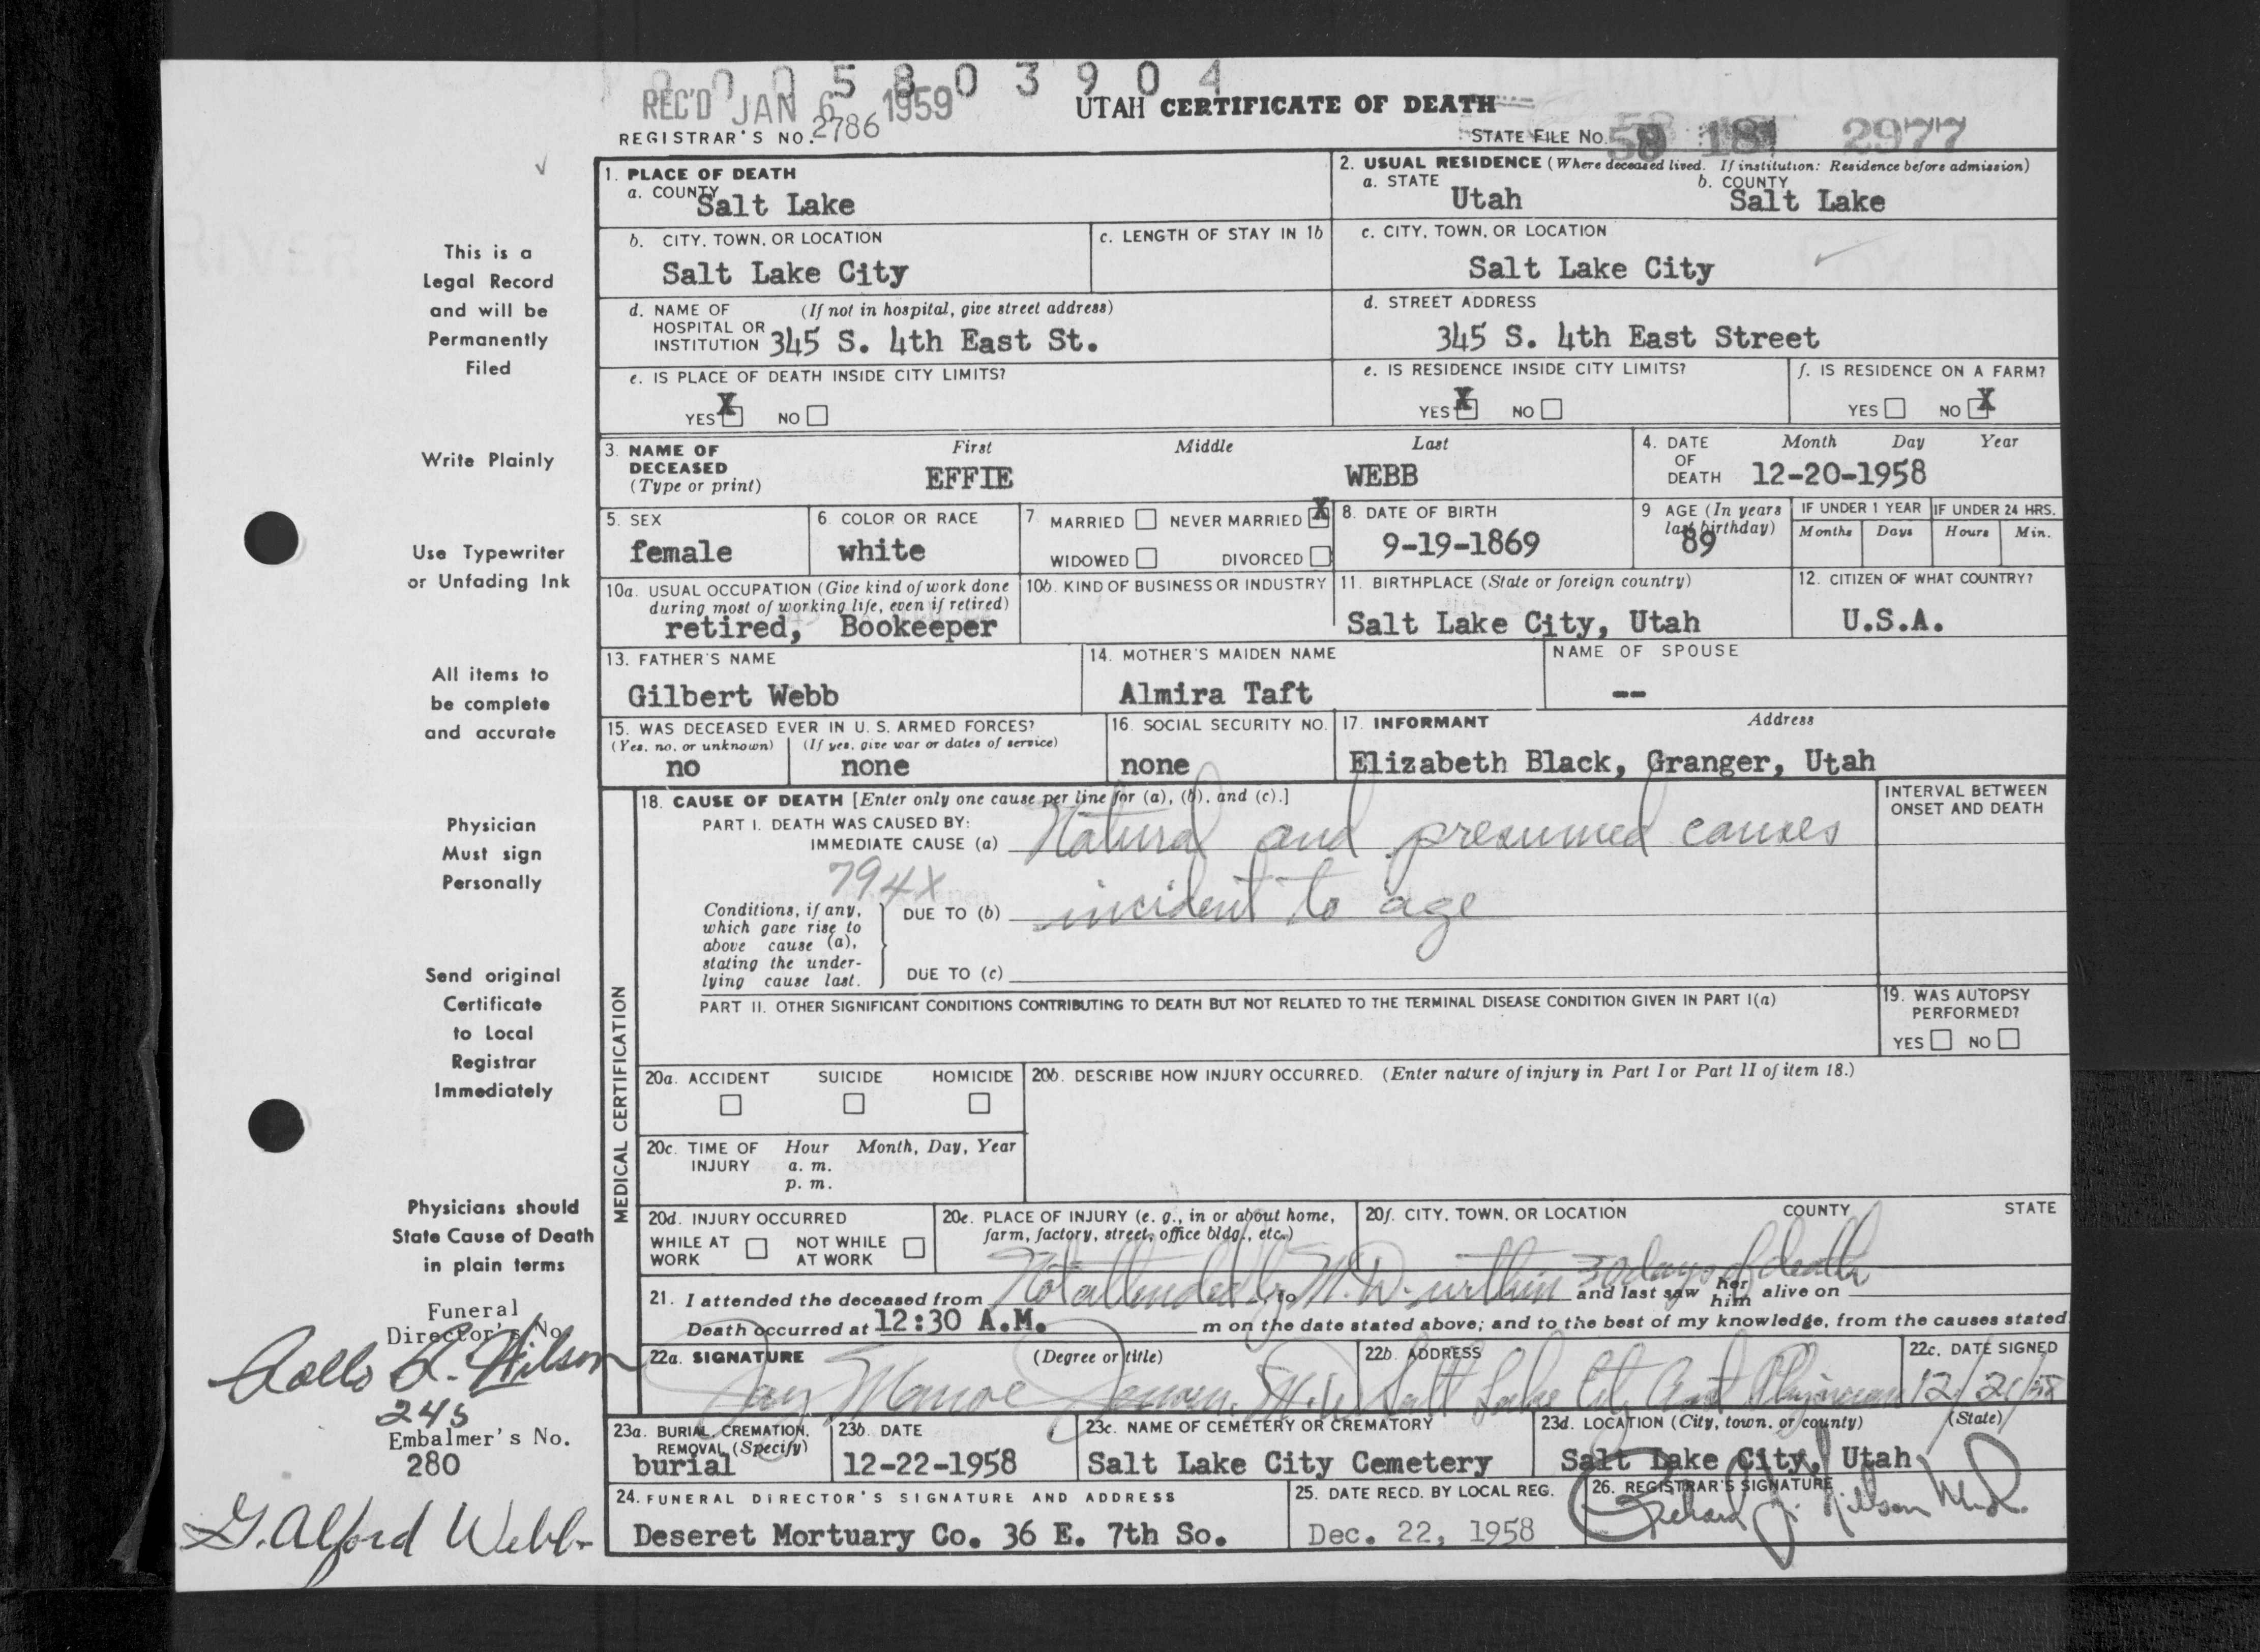 0 0 0 5 8 0 3 9 0 4
REC'D JAN 6 1959
UTAH CERTIFICATE OF DEATH
REGISTRAR'S NO. 2786
STATE FILE NO. 58 18 2977
1. PLACE OF DEATH
a. COUNTY
Salt Lake
2. USUAL RESIDENCE (Where deceased lived. If institution: Residence before admission)
a. STATE
b. COUNTY
Utah
Salt Lake
b. CITY, TOWN, OR LOCATION
Salt Lake City
c. LENGTH OF STAY IN 1b
c. CITY, TOWN, OR LOCATION
Salt Lake City
d. NAME OF (If not in hospital, give street address)
HOSPITAL OR
INSTITUTION 345 S. 4th East St.
d. STREET ADDRESS
345 S. 4th East Street
e. IS PLACE OF DEATH INSIDE CITY LIMITS?
YES X NO
e. IS RESIDENCE INSIDE CITY LIMITS?
YES X NO
f. IS RESIDENCE ON A FARM?
YES NO X
3. NAME OF
DECEASED
(Type or print)
First Middle Last
EFFIE WEBB
4. DATE
OF
DEATH
Month Day Year
12-20-1958
5. SEX
female
6. COLOR OR RACE
white
7. MARRIED NEVER MARRIED X
WIDOWED DIVORCED
8. DATE OF BIRTH
9-19-1869
9 AGE (In years
last birthday)
89
IF UNDER 1 YEAR
Months Days
IF UNDER 24 HRS.
Hours Min.
10a. USUAL OCCUPATION (Give kind of work done
during most of working life, even if retired)
retired, Bookeeper
10b. KIND OF BUSINESS OR INDUSTRY
11. BIRTHPLACE (State or foreign country)
Salt Lake City, Utah
12. CITIZEN OF WHAT COUNTRY?
U.S.A.
13. FATHER'S NAME
Gilbert Webb
14. MOTHER'S MAIDEN NAME
Almira Taft
NAME OF SPOUSE
--
15. WAS DECEASED EVER IN U. S. ARMED FORCES?
(Yes, no, or unknown) (If yes, give war or dates of service)
no none
16. SOCIAL SECURITY NO.
none
17. INFORMANT Address
Elizabeth Black, Granger, Utah
MEDICAL CERTIFICATION
18. CAUSE OF DEATH [Enter only one cause per line for (a), (b), and (c).]
PART I. DEATH WAS CAUSED BY:
IMMEDIATE CAUSE (a) Natural and presumed causes
794X
Conditions, if any,
which gave rise to
above cause (a),
stating the under-
lying cause last.
DUE TO (b) incident to age
DUE TO (c)
INTERVAL BETWEEN
ONSET AND DEATH
PART II. OTHER SIGNIFICANT CONDITIONS CONTRIBUTING TO DEATH BUT NOT RELATED TO THE TERMINAL DISEASE CONDITION GIVEN IN PART I(a)
19. WAS AUTOPSY
PERFORMED?
YES NO
20a. ACCIDENT SUICIDE HOMICIDE
20b. DESCRIBE HOW INJURY OCCURRED. (Enter nature of injury in Part I or Part II of item 18.)
20c. TIME OF Hour Month, Day, Year
INJURY a. m.
p. m.
20d. INJURY OCCURRED
WHILE AT NOT WHILE
WORK AT WORK
20e. PLACE OF INJURY (e. g., in or about home,
farm, factory, street, office bldg., etc.)
20f. CITY, TOWN, OR LOCATION COUNTY STATE
Not attended by M.D. within 30 days of death
21. I attended the deceased from , to and last saw her him alive on
Death occurred at 12:30 A.M. m on the date stated above; and to the best of my knowledge, from the causes stated
22a. SIGNATURE (Degree or title)
Jay Monroe Jensen M.D.
22b. ADDRESS
Salt Lake City Asst Physician
22c. DATE SIGNED
12/21/58
23a. BURIAL, CREMATION,
REMOVAL (Specify)
burial
23b. DATE
12-22-1958
23c. NAME OF CEMETERY OR CREMATORY
Salt Lake City Cemetery
23d. LOCATION (City, town, or county) (State)
Salt Lake City, Utah
24. FUNERAL DIRECTOR'S SIGNATURE AND ADDRESS
Deseret Mortuary Co. 36 E. 7th So.
25. DATE RECD. BY LOCAL REG.
Dec. 22, 1958
26. REGISTRAR'S SIGNATURE
Richard J. Nilson M.D.
This is a
Legal Record
and will be
Permanently
Filed
Write Plainly
Use Typewriter
or Unfading Ink
All items to
be complete
and accurate
Physician
Must sign
Personally
Send original
Certificate
to Local
Registrar
Immediately
Physicians should
State Cause of Death
in plain terms
Funeral
Director's No.
Rollo R. Wilson
245
Embalmer's No.
280
G. Alford Webb